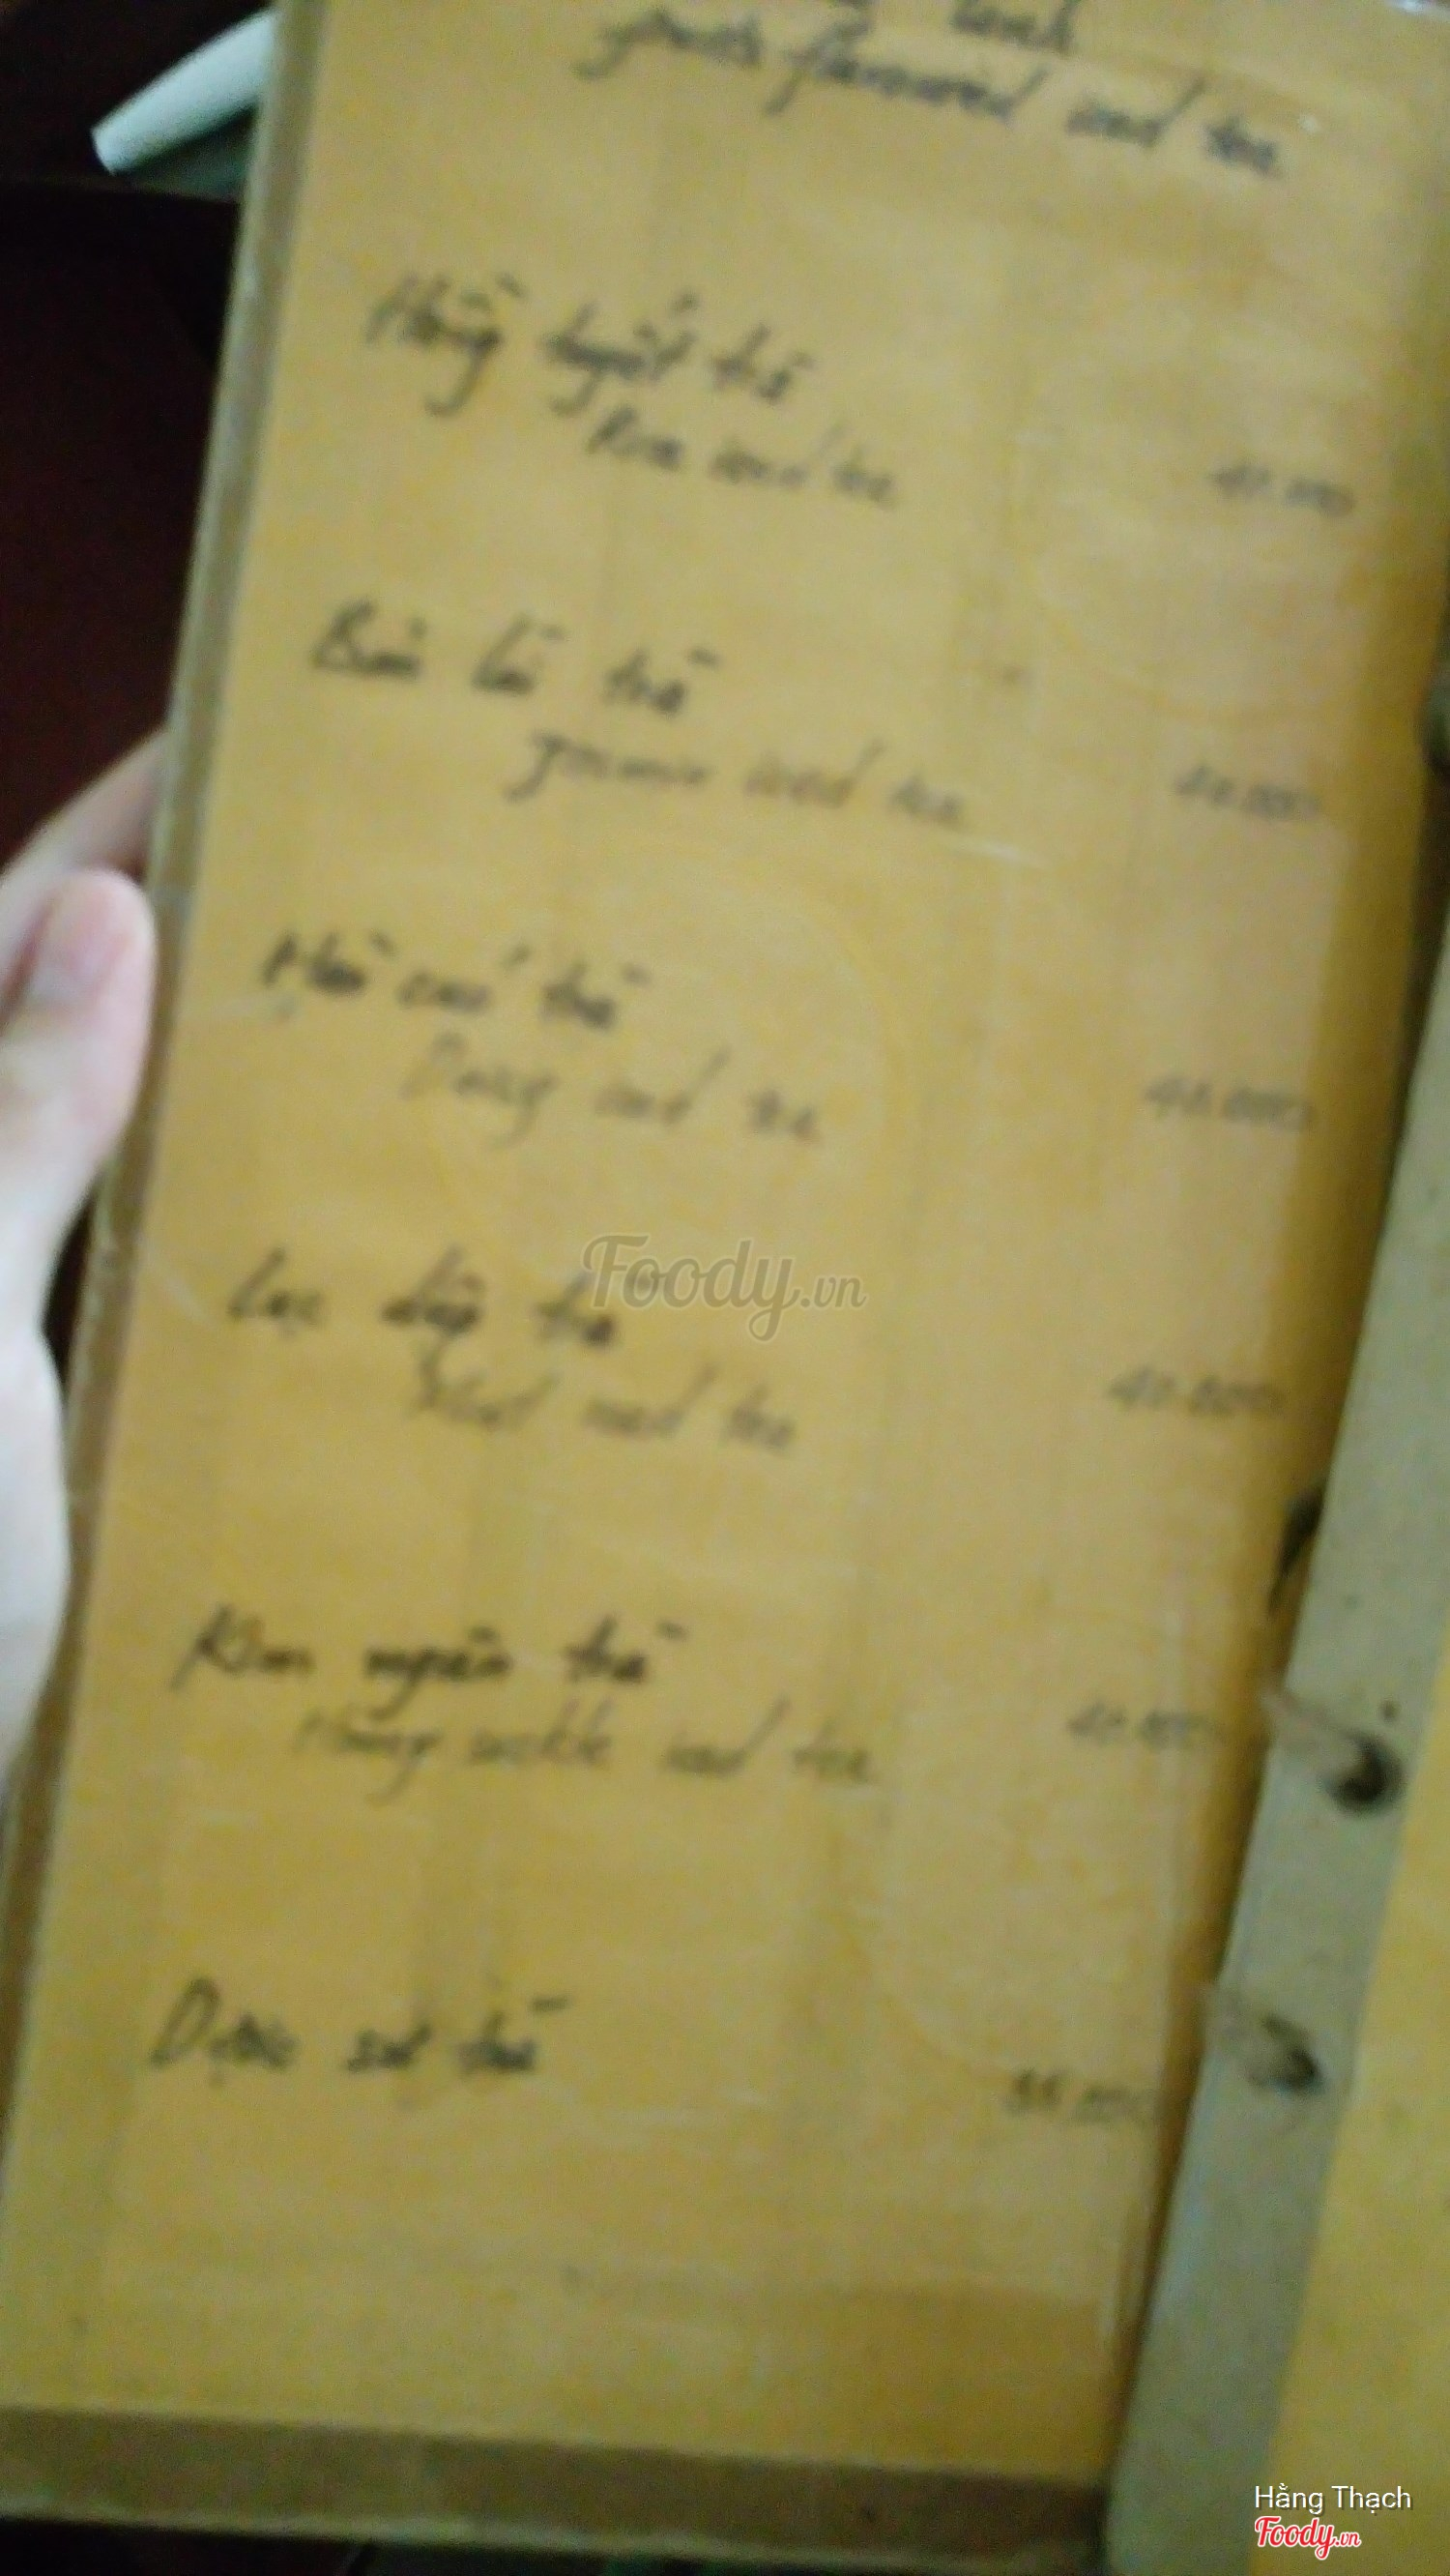 lạnh
flavoured iced tea
Hồng tuyết trà
Rose iced tea
40.000
Bảo lái trà
iced tea
40.000
cúc trà
Daisy iced tea
40.000
Lục diệp trà
iced tea
40.000
Kim ngân trà
Honey suckle iced tea
40.000
Dược sư trà
Foody.vn
Hằng Thạch
Foody.vn